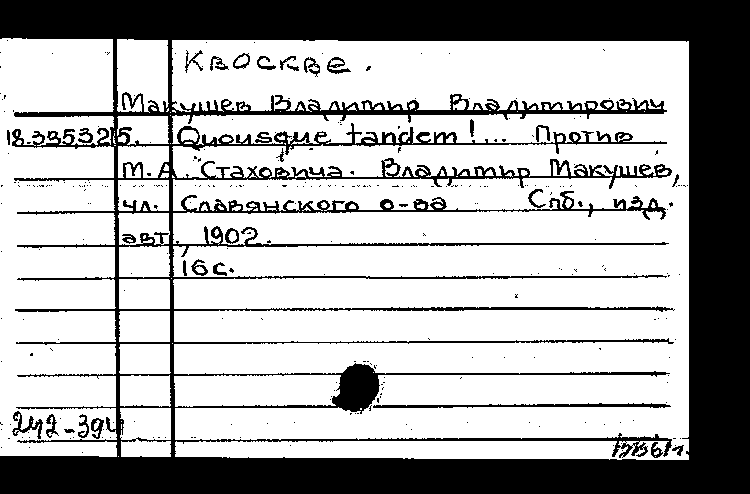 К воскве.
Макушев Владимир Владимирович
18.335.3215. Quousque tandem!... Против
М.А. Стаховича. Владимир Макушев,
чл. Славянского о-ва Спб., изд.
авт., 1902.
16 с.
242-394